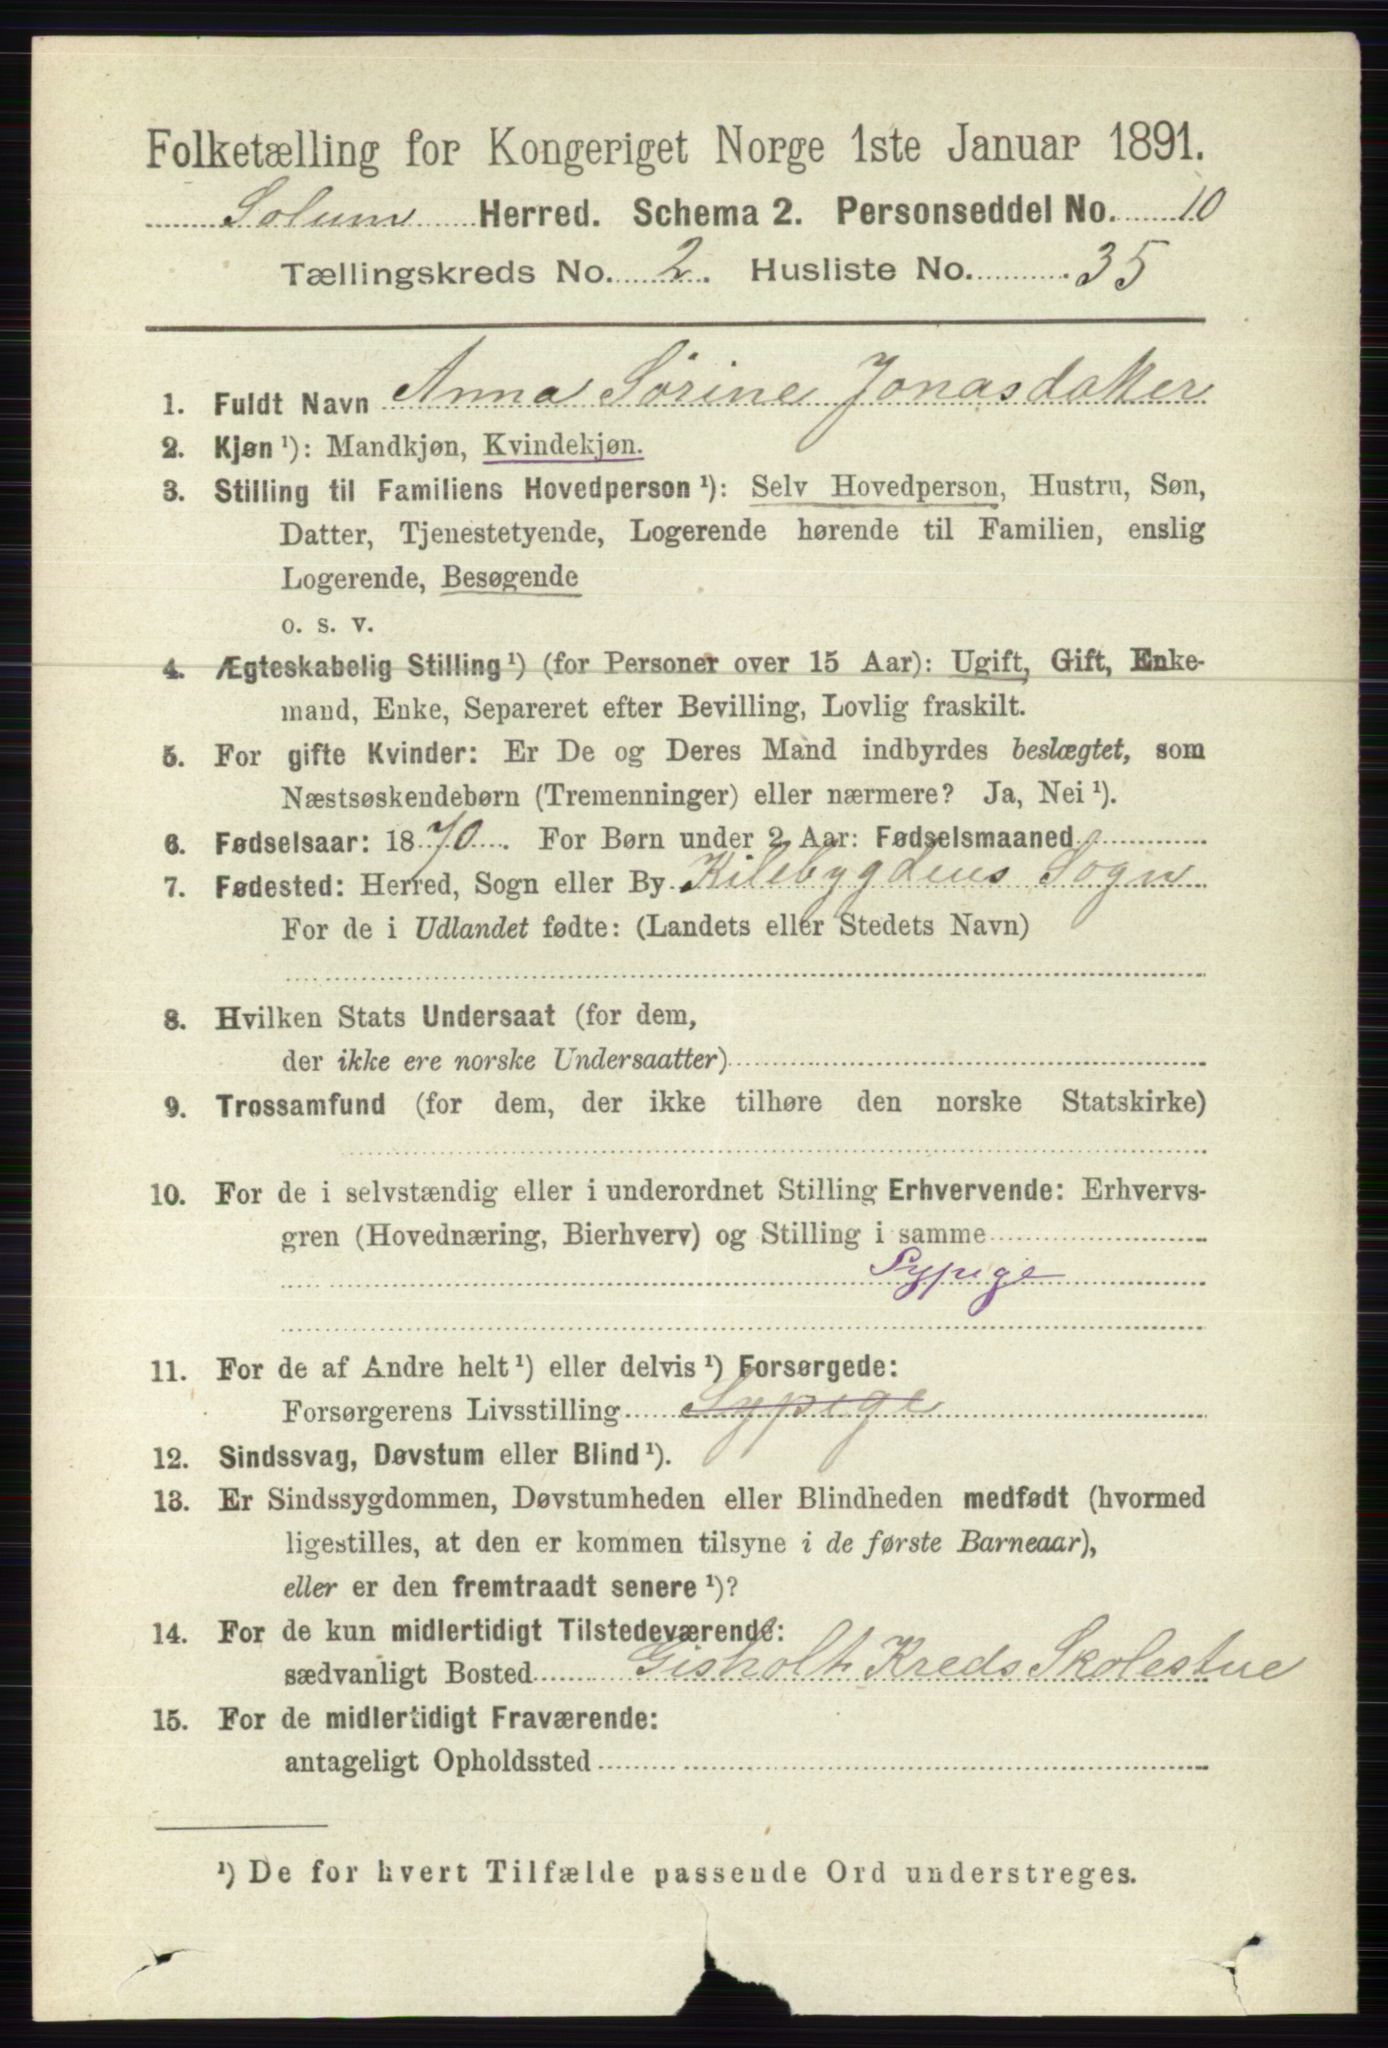 Folketælling for Kongeriget Norge 1ste Januar 1891.
Solum Herred. Schema 2. Personseddel No. 10
Tællingskreds No. 2. Husliste No. 35
1. Fuldt Navn Anna Sörine Jonasdatter
2. Kjøn ¹): Mandkjøn, Kvindekjøn.
3. Stilling til Familiens Hovedperson ¹): Selv Hovedperson, Hustru, Søn,
Datter, Tjenestetyende, Logerende hørende til Familien, enslig
Logerende, Besøgende
o. s. v.
4. Ægteskabelig Stilling ¹) (for Personer over 15 Aar): Ugift, Gift, Enke-
mand, Enke, Separeret efter Bevilling, Lovlig fraskilt.
5. For gifte Kvinder: Er De og Deres Mand indbyrdes beslægtet, som
Næstsøskendebørn (Tremenninger) eller nærmere? Ja, Nei ¹).
6. Fødselsaar: 1870. For Børn under 2 Aar: Fødselsmaaned
7. Fødested: Herred, Sogn eller By Kilebygdens Sogn
For de i Udlandet fødte: (Landets eller Stedets Navn)
8. Hvilken Stats Undersaat (for dem,
der ikke ere norske Undersaatter)
9. Trossamfund (for dem, der ikke tilhøre den norske Statskirke)
10. For de i selvstændig eller i underordnet Stilling Erhvervende: Erhvervs-
gren (Hovednæring, Bierhverv) og Stilling i samme
Sypige
11. For de af Andre helt ¹) eller delvis ¹) Forsørgede:
Forsørgerens Livsstilling Sypige
12. Sindssvag, Døvstum eller Blind ¹).
13. Er Sindssygdommen, Døvstumheden eller Blindheden medfødt (hvormed
ligestilles, at den er kommen tilsyne i de første Barneaar),
eller er den fremtraadt senere ¹)?
14. For de kun midlertidigt Tilstedeværende:
sædvanligt Bosted Gisholt Kreds Skolestue
15. For de midlertidigt Fraværende:
antageligt Opholdssted
¹) De for hvert Tilfælde passende Ord understreges.